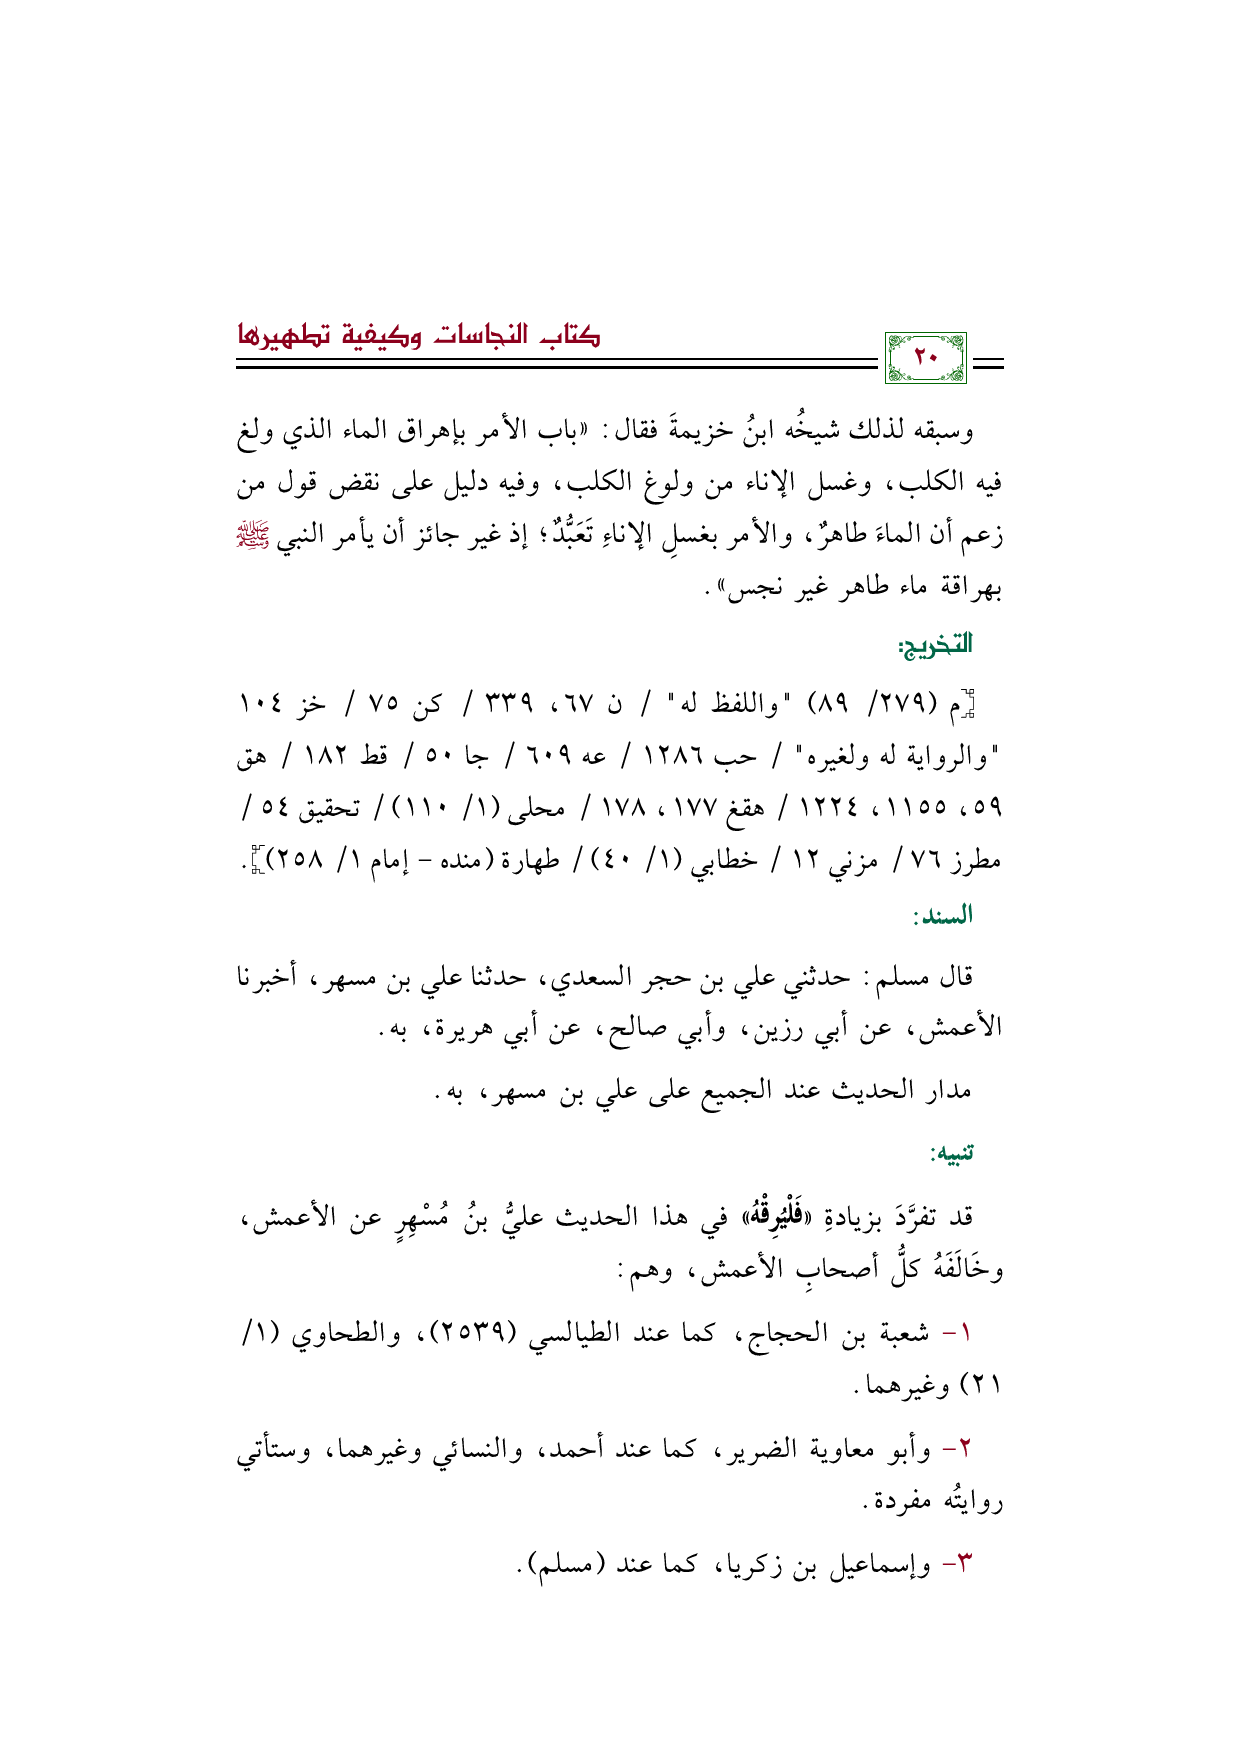 كتاب النجاسات وكيفية تطهيرها
٢٠
وسبقه لذلك شيخُه ابنُ خزيمةَ فقال: «باب الأمر بإهراق الماء الذي ولغ
فيه الكلب، وغسل الإناء من ولوغ الكلب، وفيه دليل على نقض قول من
زعم أن الماءَ طاهرٌ، والأمر بغسلِ الإناءِ تَعَبُّدٌ؛ إذ غير جائز أن يأمر النبي ﷺ
بهراقة ماء طاهر غير نجس».
التخريج:
[م (٢٧٩/ ٨٩) "واللفظ له" / ن ٦٧، ٣٣٩ / كن ٧٥ / خز ١٠٤
"والرواية له ولغيره" / حب ١٢٨٦ / عه ٦٠٩ / جا ٥٠ / قط ١٨٢ / هق
٥٩، ١١٥٥، ١٢٢٤ / هقغ ١٧٧، ١٧٨ / محلى (١/ ١١٠) / تحقيق ٥٤ /
مطرز ٧٦ / مزني ١٢ / خطابي (١/ ٤٠) / طهارة (منده - إمام ١/ ٢٥٨)].
السند:
قال مسلم: حدثني علي بن حجر السعدي، حدثنا علي بن مسهر، أخبرنا
الأعمش، عن أبي رزين، وأبي صالح، عن أبي هريرة، به.
مدار الحديث عند الجميع على علي بن مسهر، به.
تنبيه:
قد تفرَّدَ بزيادةِ «فَلْيُرِقْهُ» في هذا الحديث عليُّ بنُ مُسْهِرٍ عن الأعمش،
وخَالَفَهُ كلُّ أصحابِ الأعمش، وهم:
١- شعبة بن الحجاج، كما عند الطيالسي (٢٥٣٩)، والطحاوي (١/
٢١) وغيرهما.
٢- وأبو معاوية الضرير، كما عند أحمد، والنسائي وغيرهما، وستأتي
روايتُه مفردة.
٣- وإسماعيل بن زكريا، كما عند (مسلم).